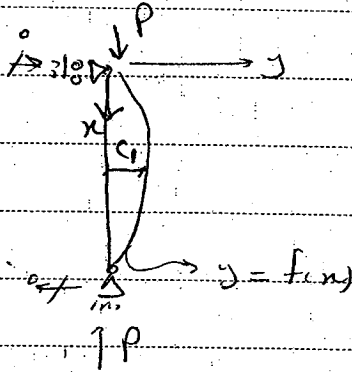 P
0
y
x
C₁
0
y = f(x)
P